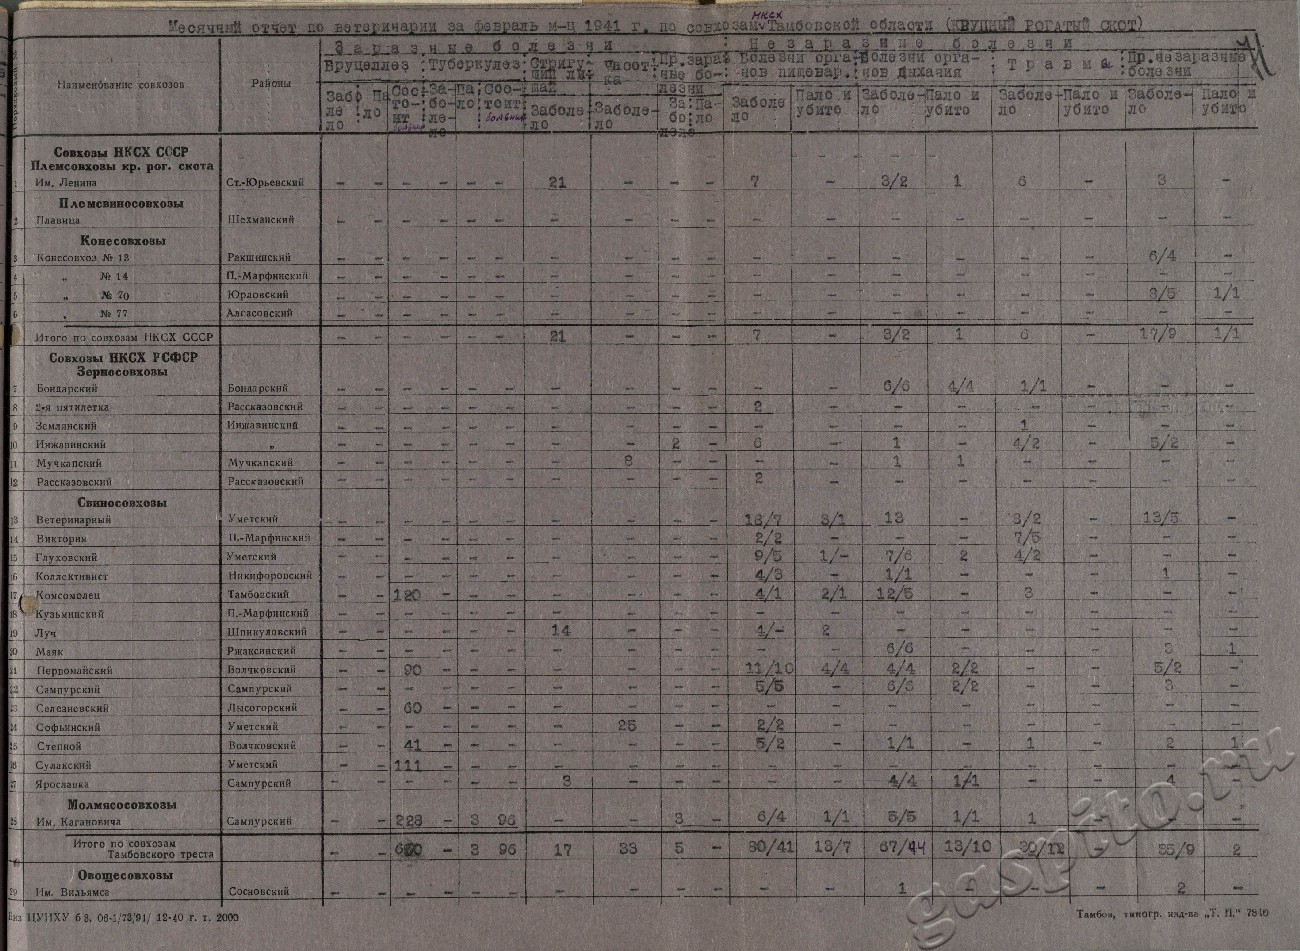 Месячный отчет по ветеринарии за февраль м-ц 1941 г. по совхозам НКСХ Тамбовской области (КРУПНЫЙ РОГАТЫЙ СКОТ)
Заразные болезни Незаразные болезни
Наименование совхозов Районы Бруцеллез Туберкулез Стригущий лишай Чесотка Пр. заразные болезни Болезни органов пищевар. Болезни органов дыхания Травмы Пр. незаразные болезни
Забо ле ло Па ло Сос то- ит больных За- бо- ле- ло Па ло Сос- тоит больных Заболе- ло Заболе- ло За бо лело Па- ло Заболе ло Пало и убито Заболе- ло Пало и убито Заболе- ло Пало и убито Заболе- ло Пало и убито
Совхозы НКСХ СССР
Племсовхозы кр. рог. скота
1 Им. Ленина Ст.-Юрьевский - - - - - - 21 - - - 7 - 3/2 1 6 - 3 -
Племсвиносовхозы
2 Плавица Шехмайский - - - - - - - - - - - - - - - - - -
Конесовхозы
3 Конесовхоз № 13 Ракшинский - - - - - - - - - - - - - - - - 6/4 -
4 „ № 14 П.-Марфинский - - - - - - - - - - - - - - - - - -
5 „ № 70 Юрловский - - - - - - - - - - - - - - - - 8/5 1/1
6 „ № 77 Алгасовский - - - - - - - - - - - - - - - - - -
Итого по совхозам НКСХ СССР - - - - - - 21 - - - 7 - 3/2 1 6 - 17/9 1/1
Совхозы НКСХ РСФСР
Зерносовхозы
7 Бондарский Бондарский - - - - - - - - - - - - 6/6 4/4 1/1 - - -
8 2-я пятилетка Рассказовский - - - - - - - - - - 2 - - - - - - -
9 Землянский Инжавинский - - - - - - - - - - - - - - 1 - - -
10 Инжавинский „ - - - - - - - - 2 - 6 - 1 - 4/2 - 5/2 -
11 Мучкапский Мучкапский - - - - - - - 8 - - - - 1 1 - - - -
12 Рассказовский Рассказовский - - - - - - - - - - 2 - - - - - - -
Свиносовхозы
13 Ветеринарный Уметский - - - - - - - - - - 18/7 3/1 13 - 3/2 - 13/5 -
14 Виктория П.-Марфинский - - - - - - - - - - 2/2 - - - 7/5 - - -
15 Глуховский Уметский - - - - - - - - - - 9/5 1/- 7/6 2 4/2 - - -
16 Коллективист Никифоровский - - - - - - - - - - 4/3 - 1/1 - - - 1 -
17 Комсомолец Тамбовский - - 120 - - - - - - - 4/1 2/1 12/5 - 3 - - -
18 Кузьминский П.-Марфинский - - - - - - - - - - - - - - - - - -
19 Луч Шпикуловский - - - - - - 14 - - - 4/- 2 - - - - - -
20 Маяк Ржаксинский - - - - - - - - - - - - 6/6 - - - 3 1
21 Первомайский Волчковский - - 90 - - - - - - - 11/10 4/4 4/4 2/2 - - 5/2 -
22 Сампурский Сампурский - - - - - - - - - - 5/5 - 6/6 2/2 - - 3 -
23 Селезневский Лысогорский - - 60 - - - - - - - - - - - - - - -
24 Софьинский Уметский - - - - - - - 25 - - 2/2 - - - - - - -
25 Степной Волчковский - - 41 - - - - - - - 5/2 - 1/1 - 1 - 2 1
26 Сулакский Уметский - - 111 - - - - - - - - - - - - - - -
27 Ярославка Сампурский - - - - - - 3 - - - - - 4/4 1/1 - - 4 -
Молмясосовхозы
28 Им. Кагановича Сампурский - - 228 - 3 96 - - 3 - 6/4 1/1 5/5 1/1 1 - -
Итого по совхозам
Тамбовского треста - - - 3 96 17 33 5 - 80/41 13/7 67/44 13/10 30/12 35/9 2
Овощесовхозы
29 Им. Вильямса Сосновский - - - - - - - - - - - - 1 - - - 2 -
ЦУНХУ 12-40 г. т. 2000
Тамбов, типогр. изд-ва „Т. П."
gaspito.ru